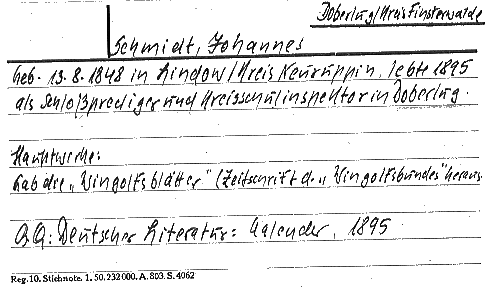 Doberlug/Kreis Finsterwalde
Schmidt, Johannes
Geb. 13.8.1848 in Lindow/Kreis Neuruppin, lebte 1895
als Schloßprediger und Kreisschulinspektor in Doberlug.
Hauptwerke:
Gab die „Wingolfsblätter" (Zeitschrift des „Wingolfsbundes" heraus
QQ: Deutscher Literatur-Kalender, 1895
Reg. 10. Stichnote. 1. 50. 232000. A. 803. S. 4062